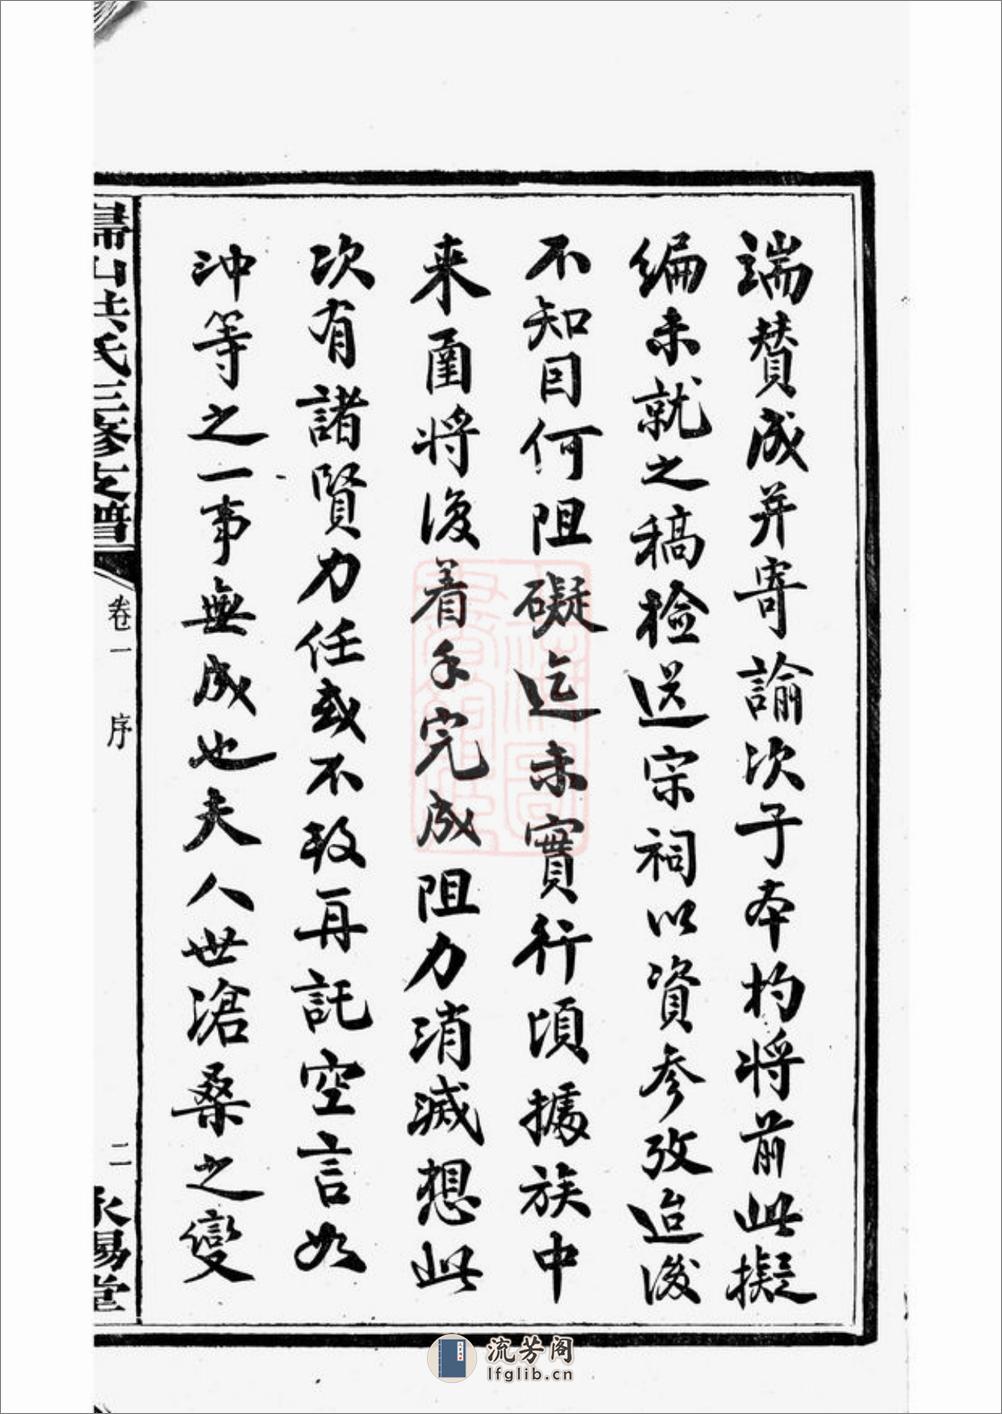 端贊成并寄諭次子本杓將前此擬
編未就之稿檢送宗祠以資參攷迨後
不知因何阻礙迄未實行頃據族中
来函將復着手完成阻力消滅想此
次有諸賢力任或不致再託空言如
沖等之一事無成也夫人世滄桑之變
山洪氏三修支譜
卷一 序
二
永易堂
流芳阁
lfglib.cn